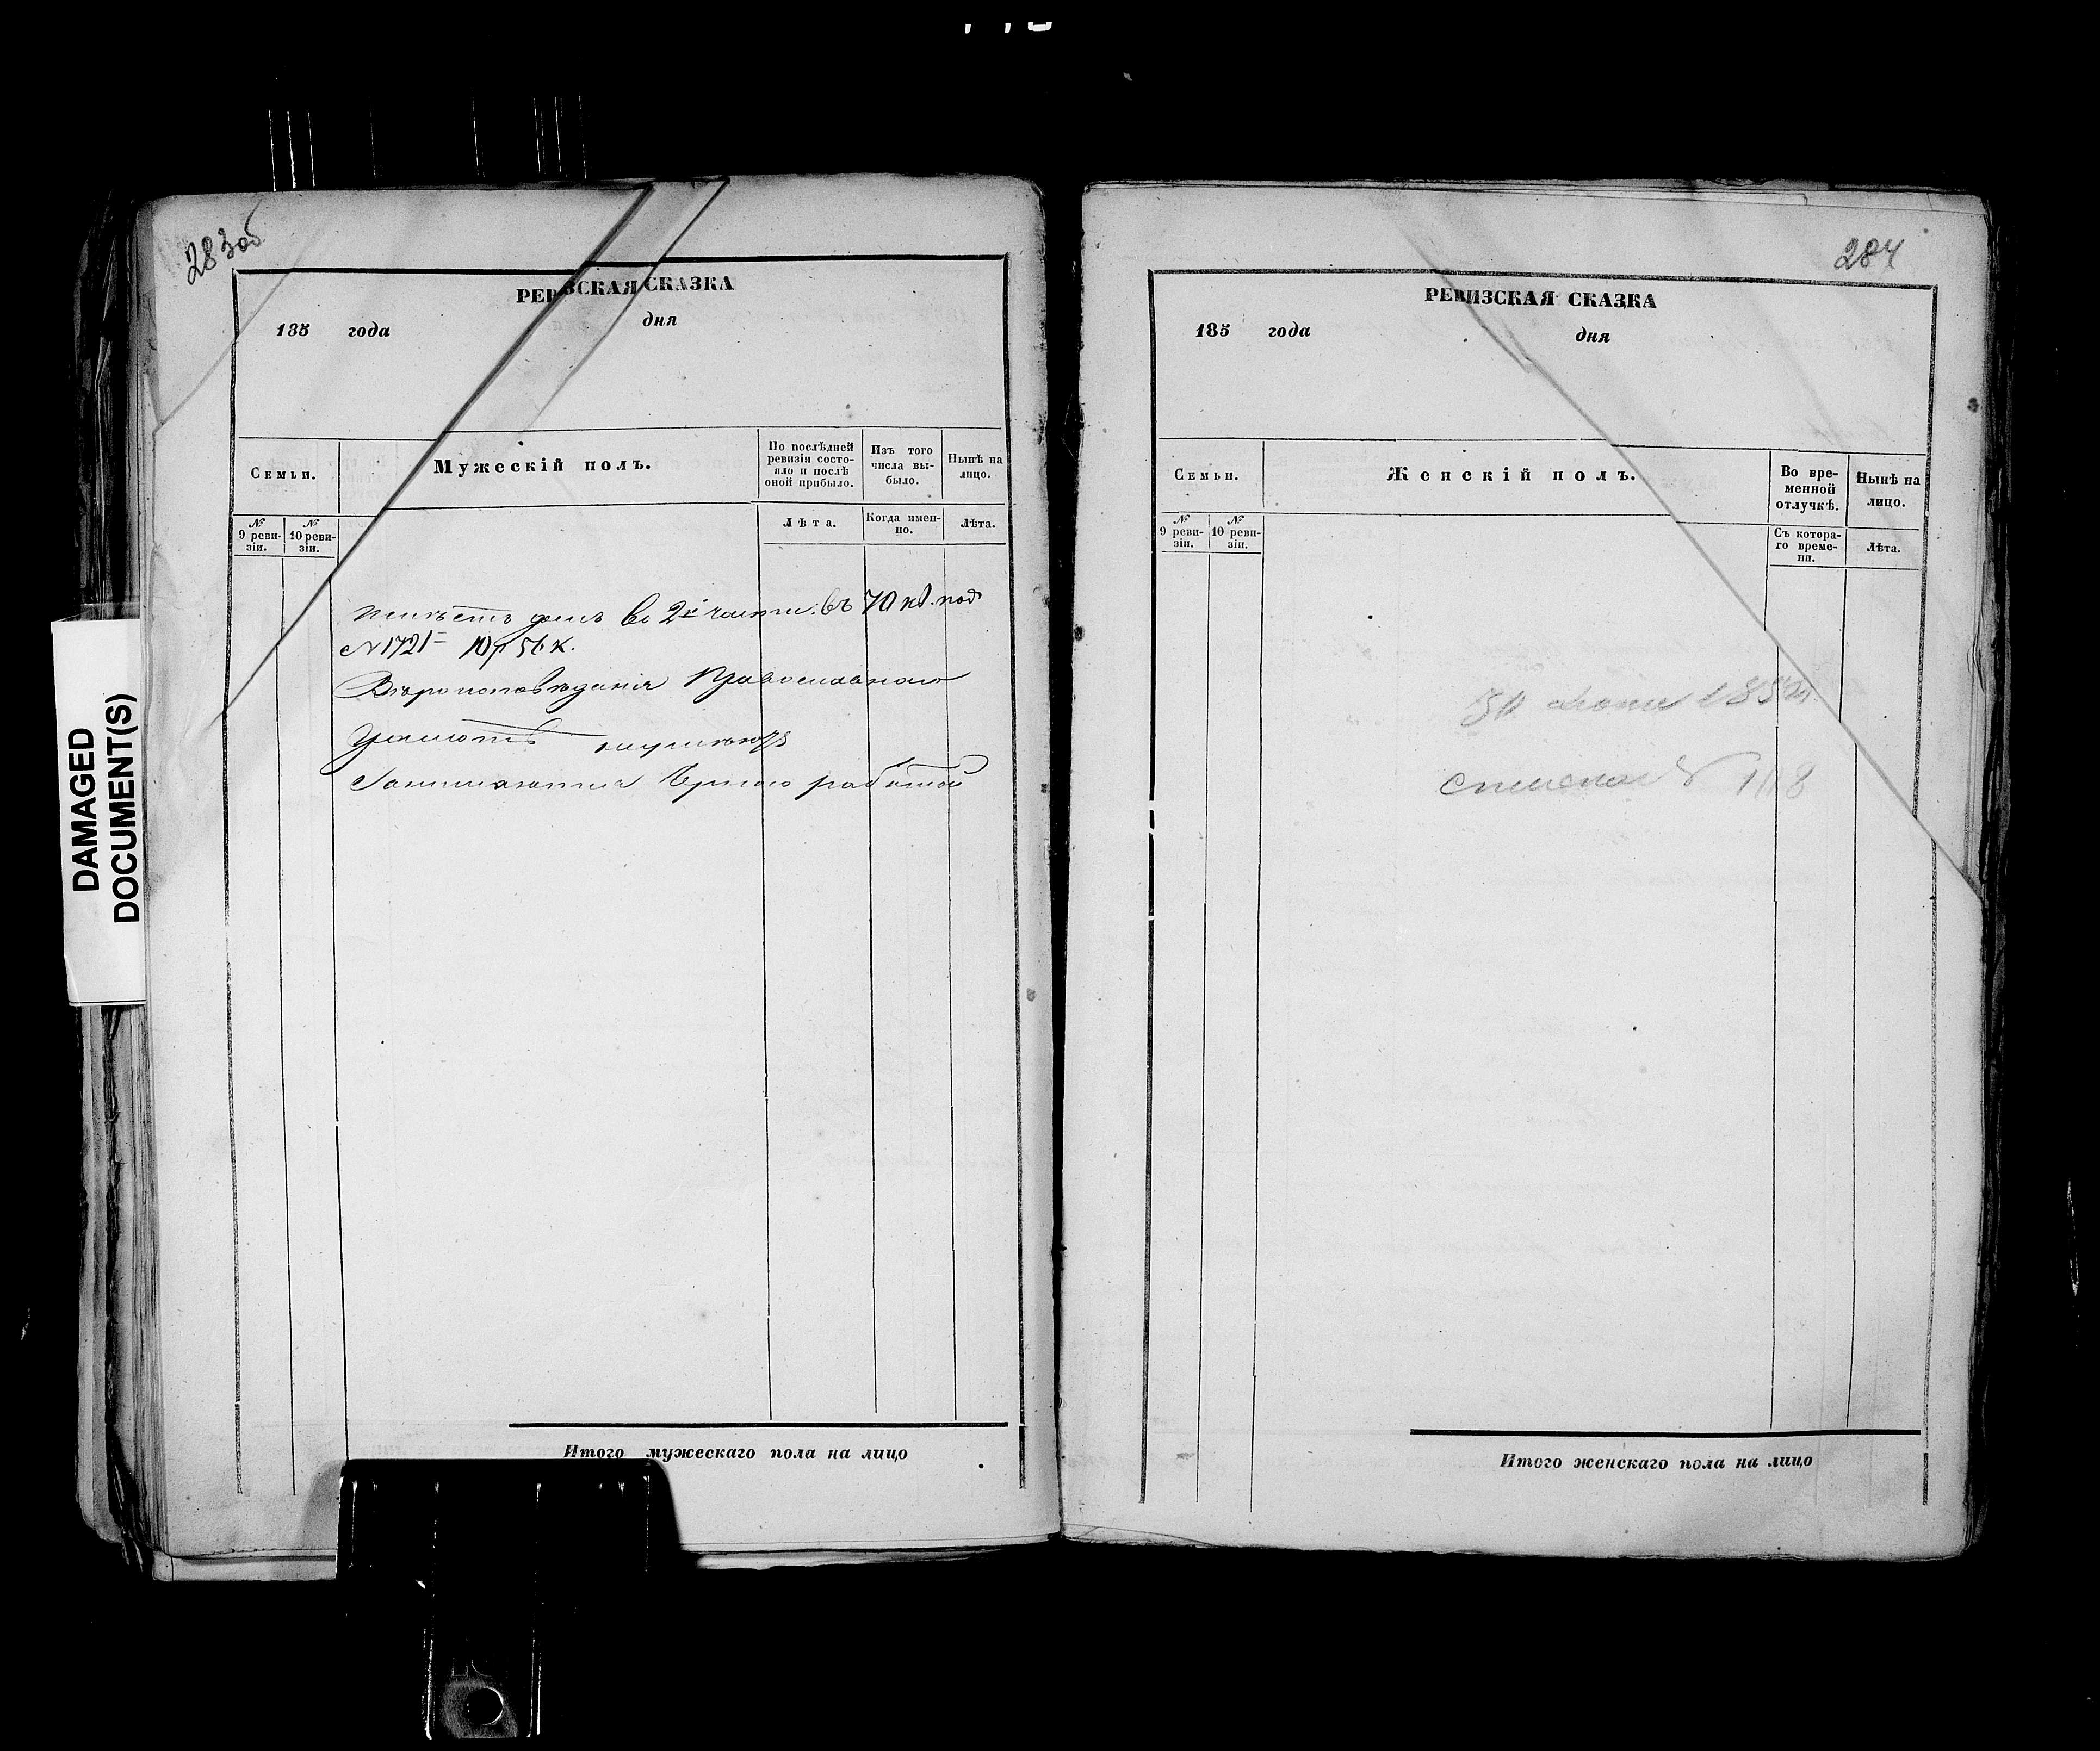 283об
РЕВИЗСКАЯ СКАЗКА
185 года дня
Семьи.
Мужескій полъ.
По послѣдней ревизіи состояло и послѣ оной прибыло.
Изъ того числа выбыло.
Нынѣ на лицо.
№ 9 ревизіи.
№ 10 ревизіи.
Лѣта.
Когда именно.
Лѣта.
имѣетъ домъ во 2й части въ 70 кв. под
№ 1721 – 10 р 56 к.
Вѣроисповѣданія Православнаго
Грамотѣ неумѣютъ
Занимаются Черною работой
Итого мужескаго пола на лицо
284
РЕВИЗСКАЯ СКАЗКА
185 года дня
Семьи.
Женскій полъ.
Во временной отлучкѣ.
Нынѣ на лицо.
№ 9 ревизіи.
№ 10 ревизіи.
Съ котораго времени.
Лѣта.
Итого женскаго пола на лицо
DAMAGED
DOCUMENT(S)